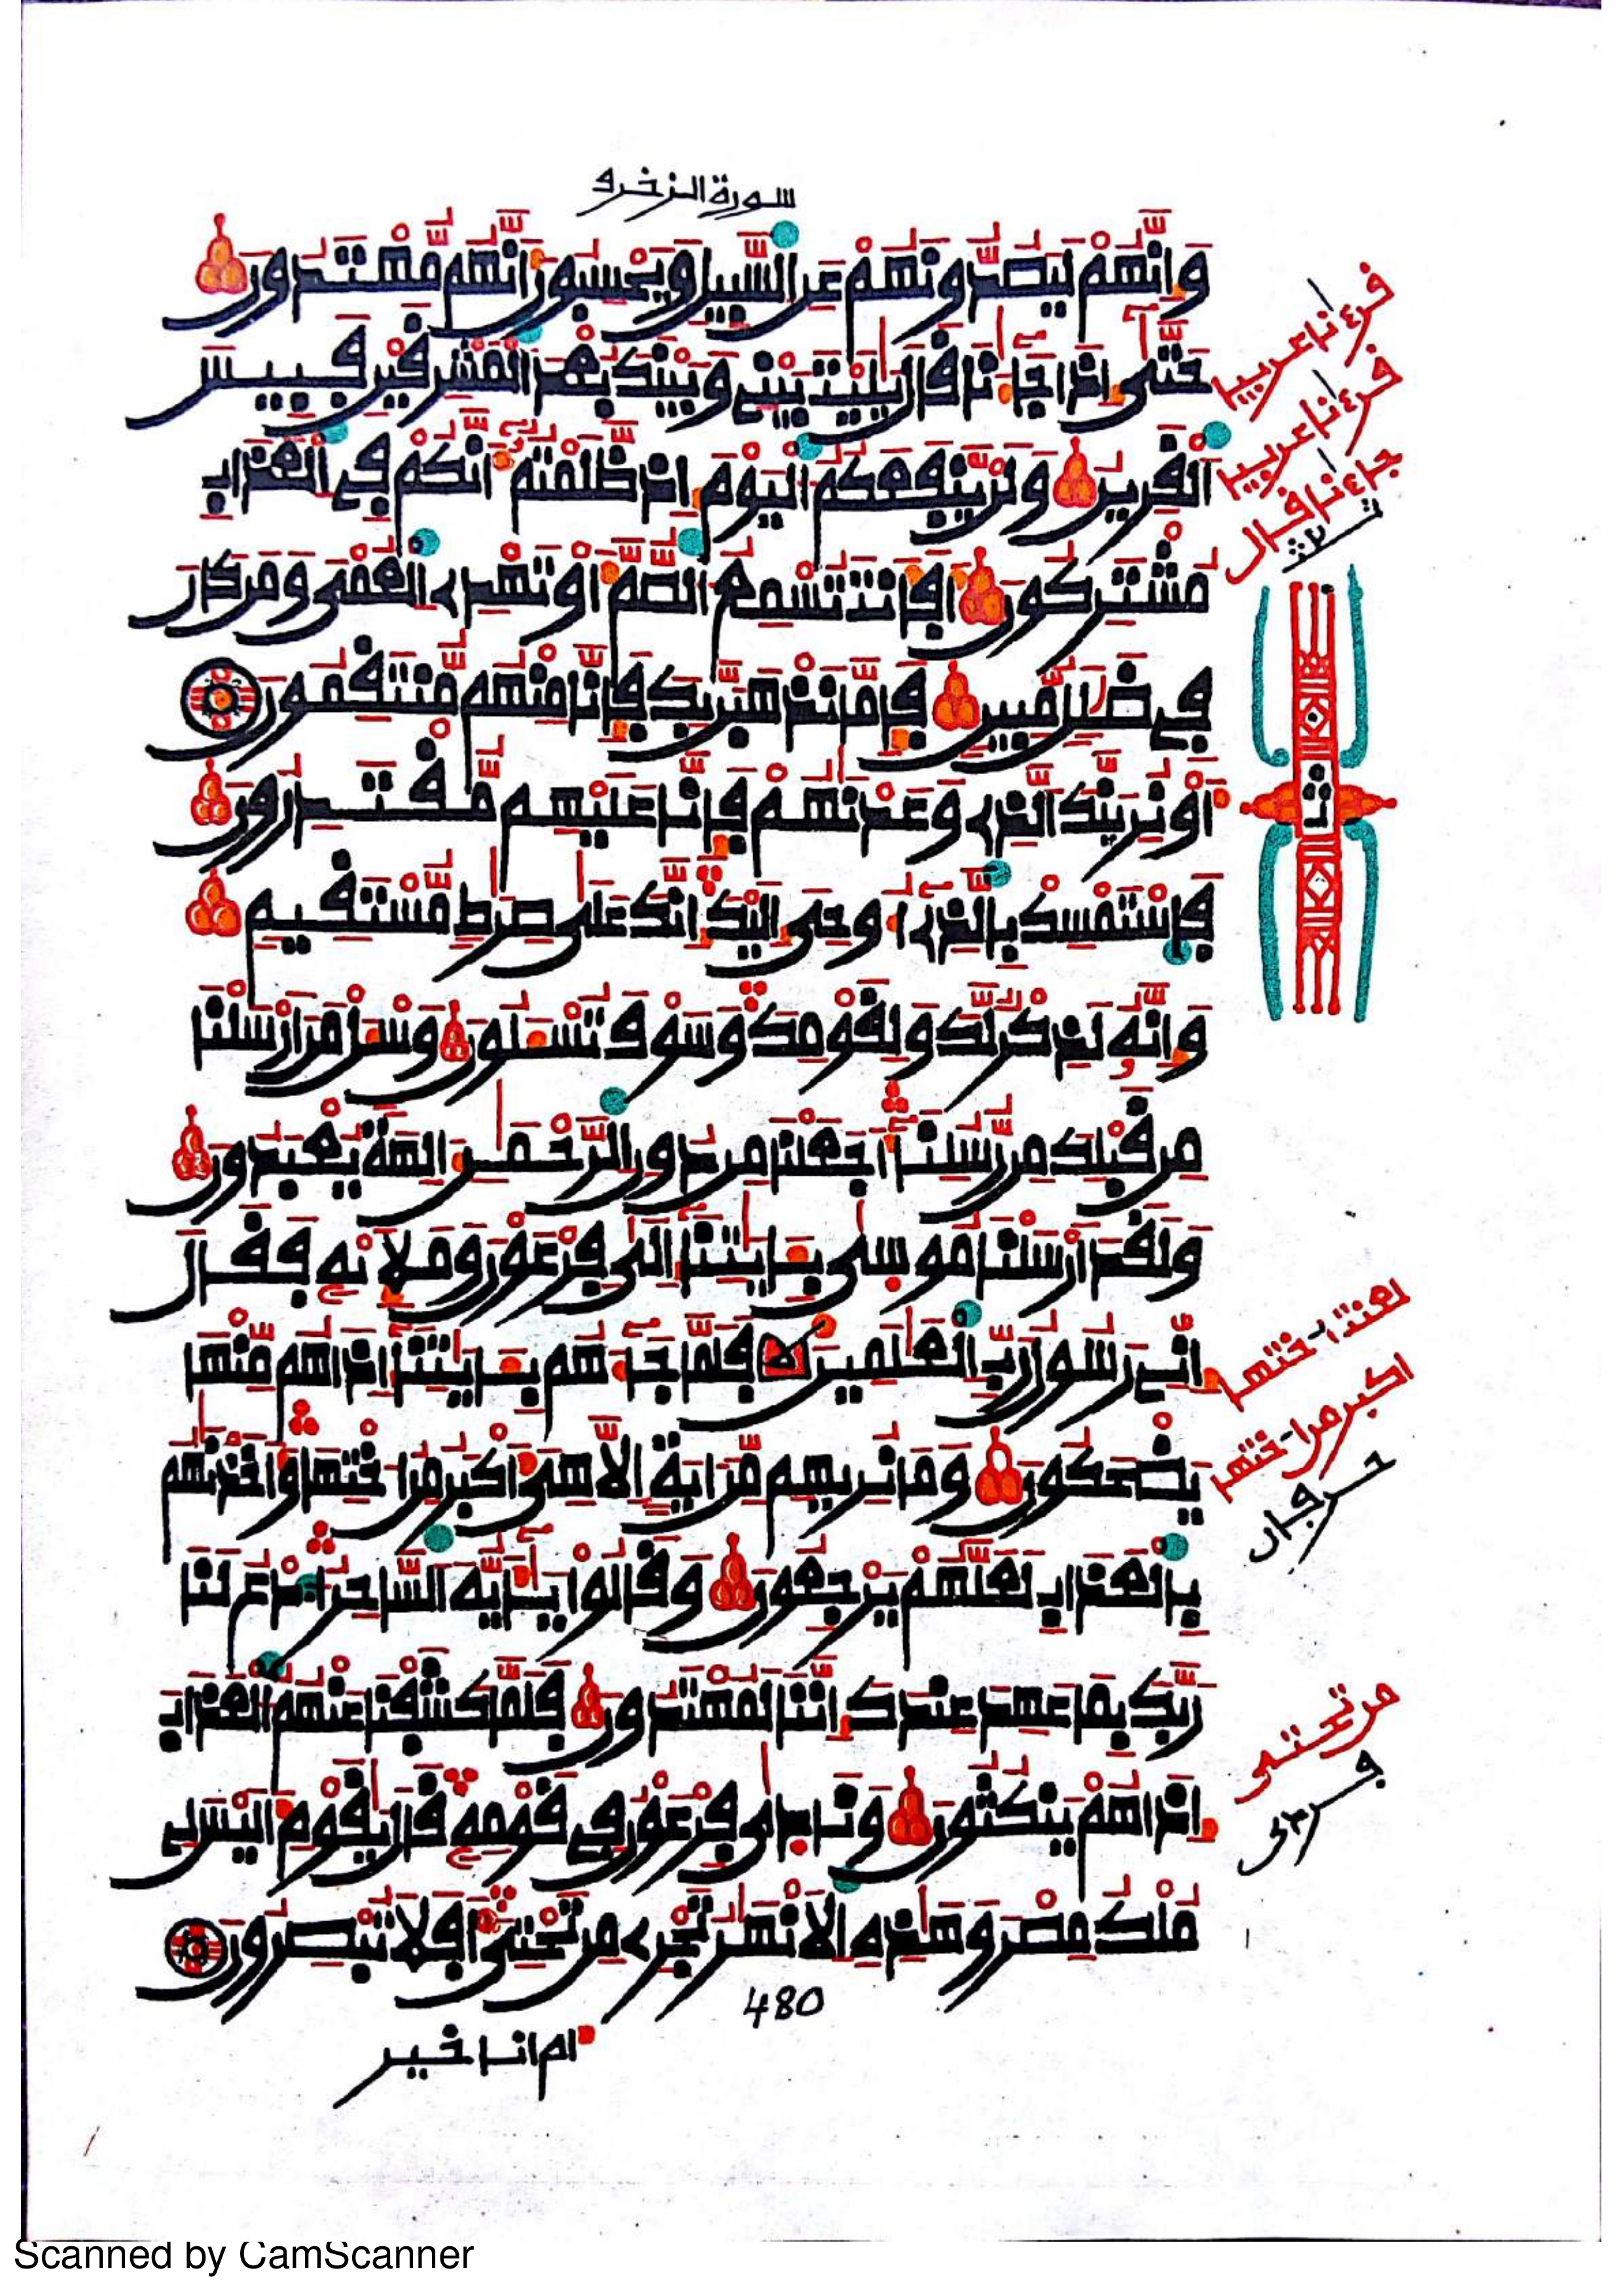 سورة الزخرف
وَإِنَّهُمْ لَيَصُدُّونَهُمْ عَنِ السَّبِيلِ وَيَحْسِبُونَ أَنَّهُم مُّهْتَدُونَ
حَتَّىٰ إِذَا جَآءَٰنَا قَالَ يَٰلَيْتَ بَيْنِي وَبَيْنَكَ بُعْدَ الْمَشْرِقَيْنِ فَبِيسَ
الْقَرِينُ وَلَنْ يَّنفَعَكُمُ الْيَوْمَ إِذ ظَّلَمْتُمُ أَنَّكُمْ فِي الْعَذَابِ
مُشْتَرِكُونَ أَفَأَنتَ تُسْمِعُ الصُّمَّ أَوْ تَهْدِي الْعُمْيَ وَمَن كَانَ
فِي ضَلَٰلٍ مُّبِينٍ فَإِمَّا نَذْهَبَنَّ بِكَ فَإِنَّا مِنْهُم مُّنتَقِمُونَ
أَوْ نُرِيَنَّكَ الَّذِي وَعَدْنَٰهُمْ فَإِنَّا عَلَيْهِم مُّقْتَدِرُونَ
فَاسْتَمْسِكْ بِالَّذِي أُوحِيَ إِلَيْكَ إِنَّكَ عَلَىٰ صِرَٰطٍ مُّسْتَقِيمٍ
وَإِنَّهُ لَذِكْرٌ لَّكَ وَلِقَوْمِكَ وَسَوْفَ تُسْـَٔلُونَ وَسْـَٔلْ مَنْ أَرْسَلْنَا
مِن قَبْلِكَ مِن رُّسُلِنَآ أَجَعَلْنَا مِن دُونِ الرَّحْمَٰنِ ءَالِهَةً يُعْبَدُونَ
وَلَقَدْ أَرْسَلْنَا مُوسَىٰ بِـَٔايَٰتِنَآ إِلَىٰ فِرْعَوْنَ وَمَلَإِيْهِ فَقَالَ
إِنِّي رَسُولُ رَبِّ الْعَٰلَمِينَ فَلَمَّا جَآءَهُم بِـَٔايَٰتِنَآ إِذَا هُم مِّنْهَا
يَضْحَكُونَ وَمَا نُرِيهِم مِّنْ ءَايَةٍ إِلَّا هِيَ أَكْبَرُ مِنْ أُخْتِهَا وَأَخَذْنَٰهُم
بِالْعَذَابِ لَعَلَّهُمْ يَرْجِعُونَ وَقَالُوا يَٰٓأَيُّهَ السَّاحِرُ ادْعُ لَنَا
رَبَّكَ بِمَا عَهِدَ عِندَكَ إِنَّنَا لَمُهْتَدُونَ فَلَمَّا كَشَفْنَا عَنْهُمُ الْعَذَابَ
إِذَا هُمْ يَنكُثُونَ وَنَادَىٰ فِرْعَوْنُ فِي قَوْمِهِ قَالَ يَٰقَوْمِ أَلَيْسَ لِي
مُلْكُ مِصْرَ وَهَٰذِهِ الْأَنْهَٰرُ تَجْرِي مِن تَحْتِيَ أَفَلَا تُبْصِرُونَ
480
ام انا خير
قرءنا عربيا
قرءنا عربيا
جاءنا قال
ثمن
لعنتا اختها
اكبر من اختها
من تحتى
Scanned by CamScanner